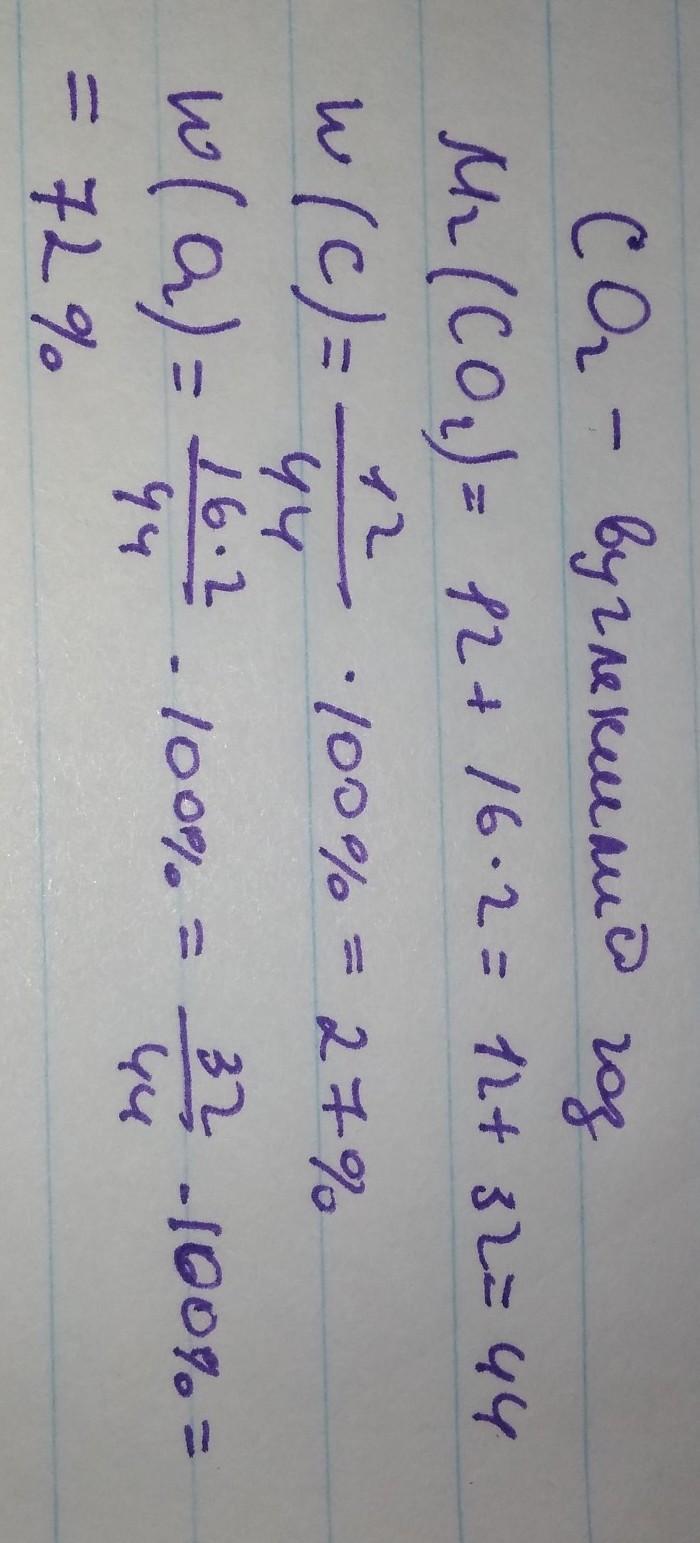 CO₂ - вуглекислий газ
Mr(CO₂) = 12 + 16·2 = 12 + 32 = 44
w(C) = 12/44 · 100% = 27%
w(O₂) = 16·2/44 · 100% = 32/44 · 100% =
= 72%